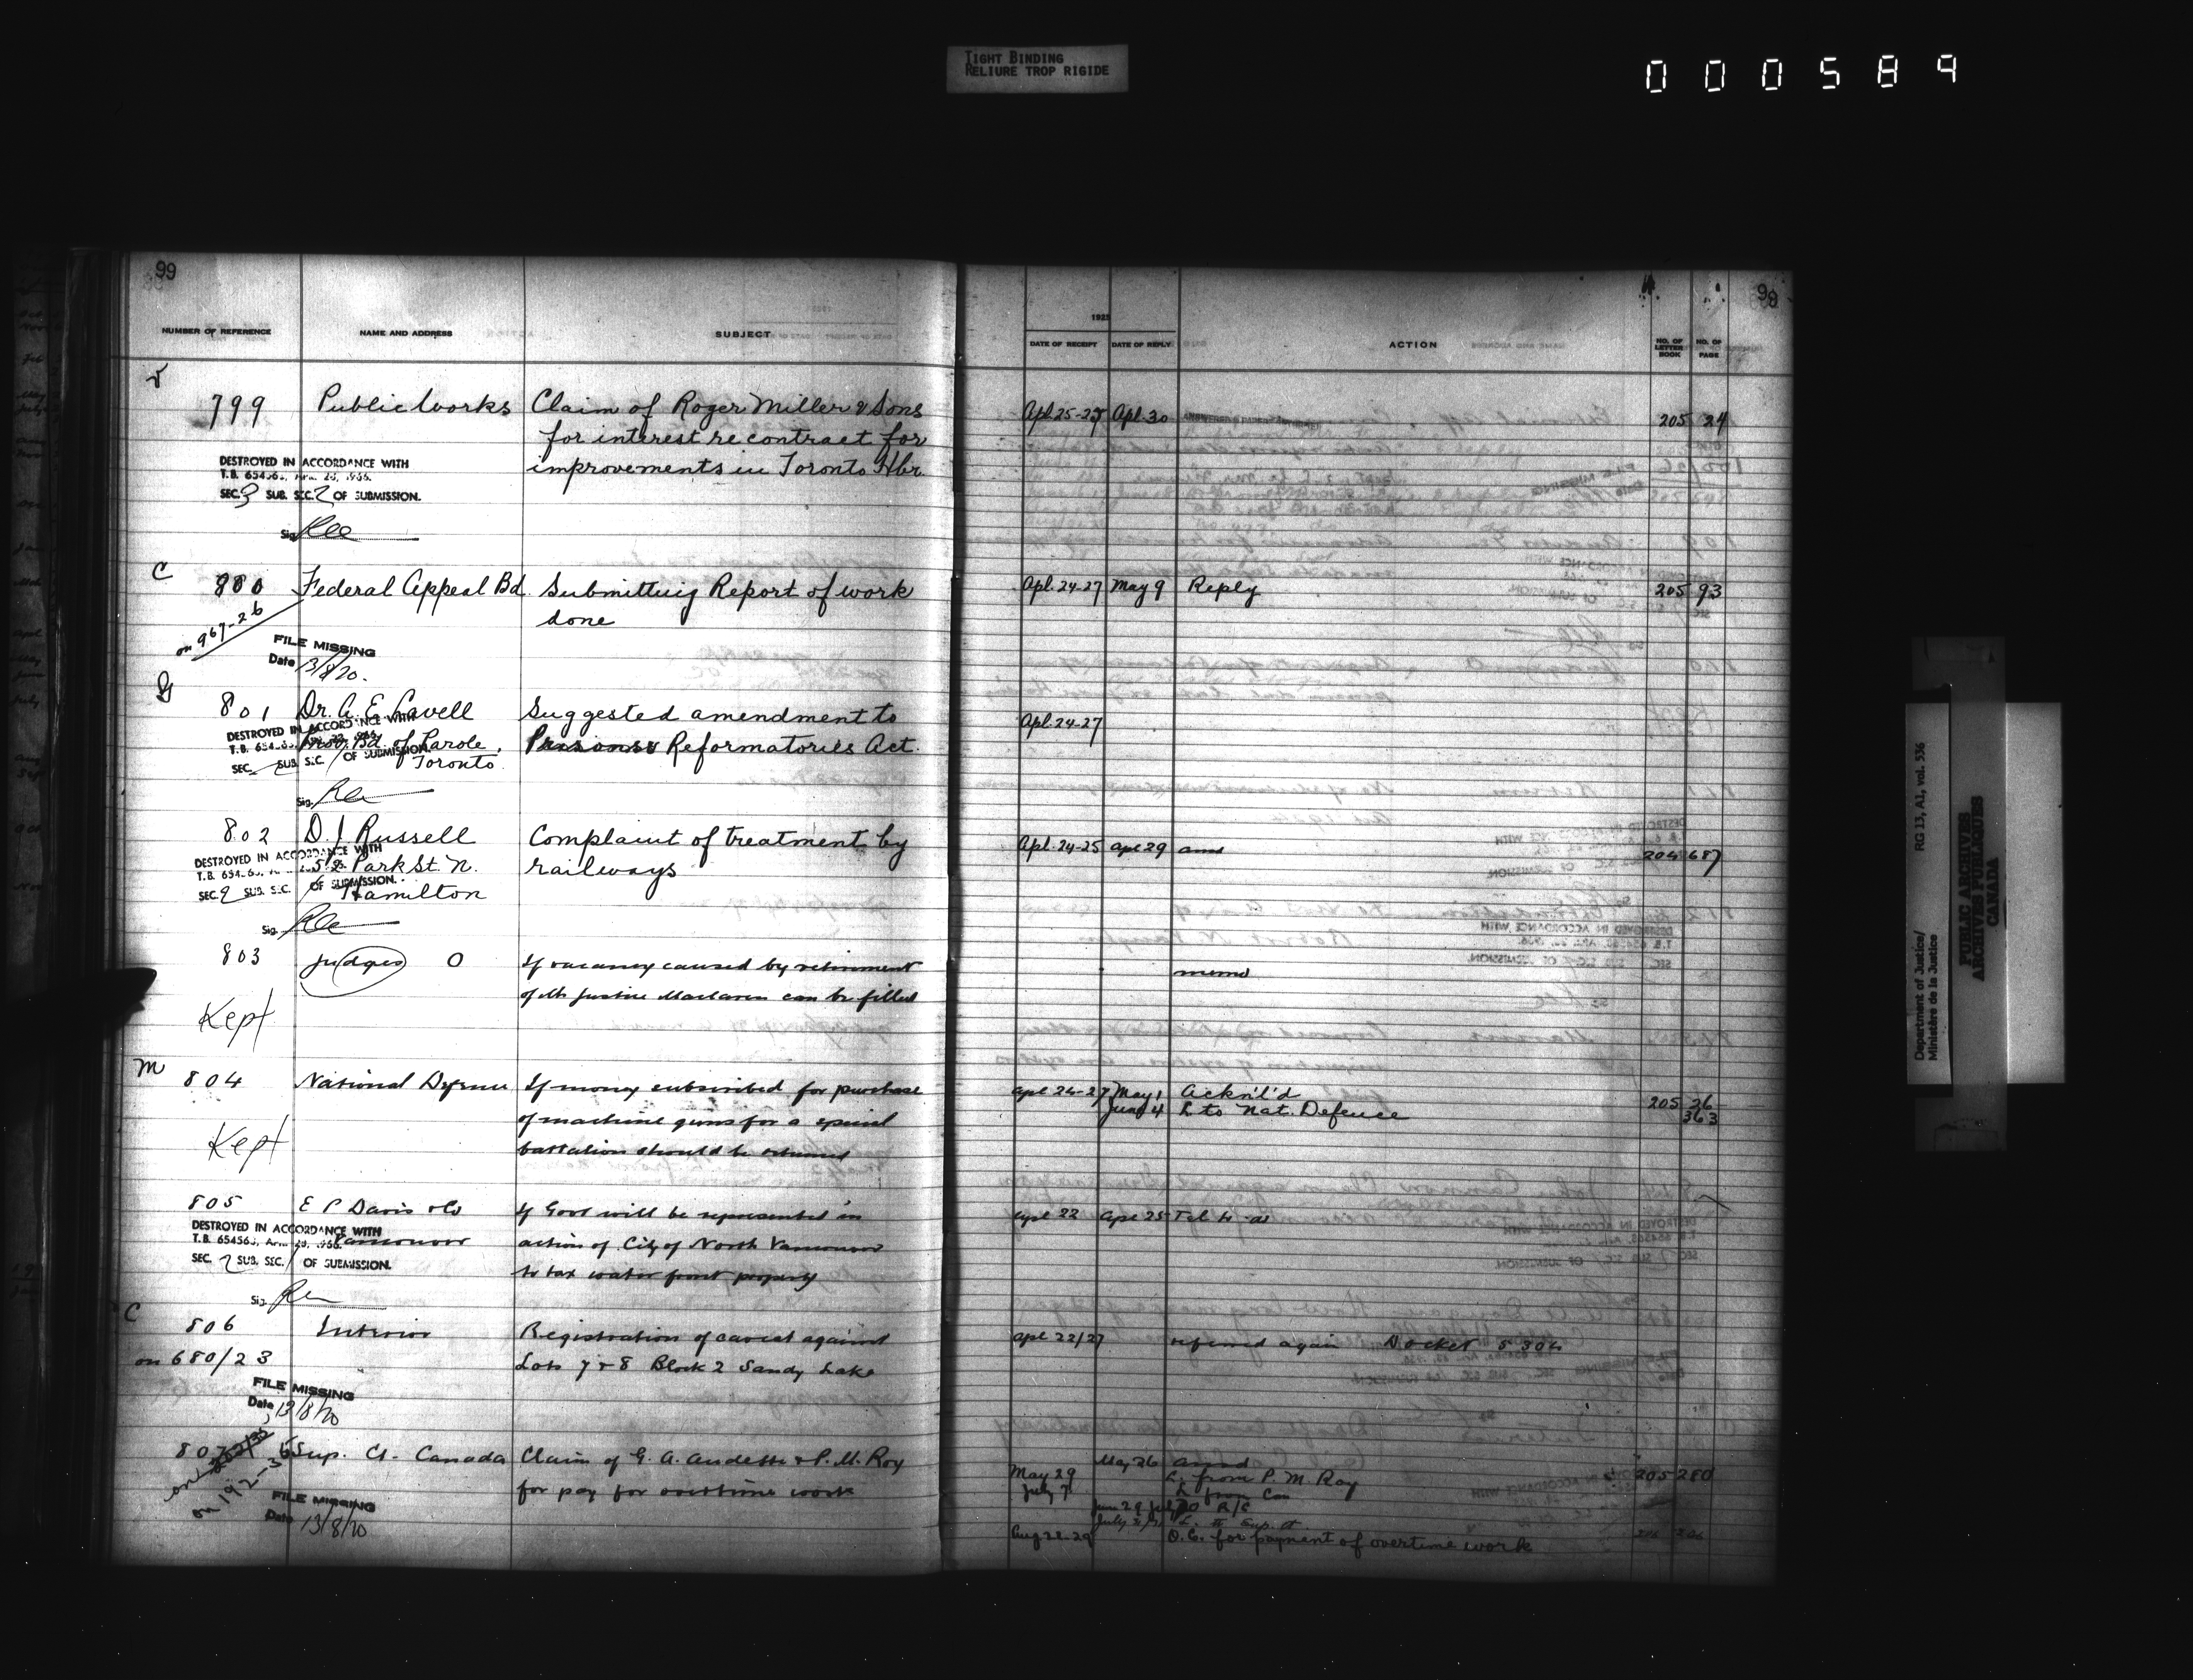 TIGHT BINDING
RELIURE TROP RIGIDE
000589
99
99
NUMBER OF REFERENCE NAME AND ADDRESS SUBJECT
DATE OF RECEIPT DATE OF REPLY ACTION NO. OF LETTER BOOK NO. OF PAGE
799 Public Works Claim of Roger Miller & Sons Apl. 25-27 Apl. 30 205 24
for interest re contract for
improvements in Toronto Hbr.
DESTROYED IN ACCORDANCE WITH
T.B. 654563, APR. 28, 1966.
SEC. 3 SUB. SEC. 2 OF SUBMISSION.
Sig.
C
800 Federal Appeal Bd. Submitting Report of work Apl. 24-27 May 9 Reply 205 93
done
on 967-26
FILE MISSING
Date 13/8/70.
801 Dr. A. E. Lavell Suggested amendment to Apl. 24-27
Prov. Bd. of Parole, Prisons & Reformatories Act.
Toronto
DESTROYED IN ACCORDANCE WITH
SEC. SUB. SEC. / OF SUBMISSION.
Sig.
802 D. J. Russell Complaint of treatment by Apl. 24-25 Apl 29 ansd 204 687
52 Park St. N. railways
Hamilton
DESTROYED IN ACCORDANCE WITH
SEC. 2 SUB. SEC. / OF SUBMISSION.
Sig.
803 Judges O If vacancy caused by retirement memo
of Mr Justice Maclaren can be filled
Kept
M
804 National Defence If money subscribed for purchase Apl 24-27 May 1 Ackn'l'd 205 26
of machine guns for a special June 4 L to Nat. Defence 363
battalion should be returned
Kept
805 E P Davis & Co If Govt will be represented in Apl 22 Apl 25 Tel to
Vancouver action of City of North Vancouver
to tax water front property
DESTROYED IN ACCORDANCE WITH
T.B. 654563, APR. 28, 1966.
SEC. 2 SUB. SEC. / OF SUBMISSION.
Sig.
C
806 Interior Registration of caveat against Apl 22/27 referred again Docket 5304
on 680/23 Lots 7 & 8 Block 2 Sandy Lake
FILE MISSING
Date 13/8/70
807 Sup. Ct. Canada Claim of G. A. Audette & P. M. Roy May 26 ansd 205 280
for pay for overtime work May 29 L. from P. M. Roy
July 7 L from
on 192-35
FILE MISSING
Date 13/8/70
June 29
L. to Sup. Ct
Aug 22-29 O.C. for payment of overtime work
Department of Justice/
Ministère de la Justice
RG 13, A1, vol. 536
PUBLIC ARCHIVES
ARCHIVES PUBLIQUES
CANADA